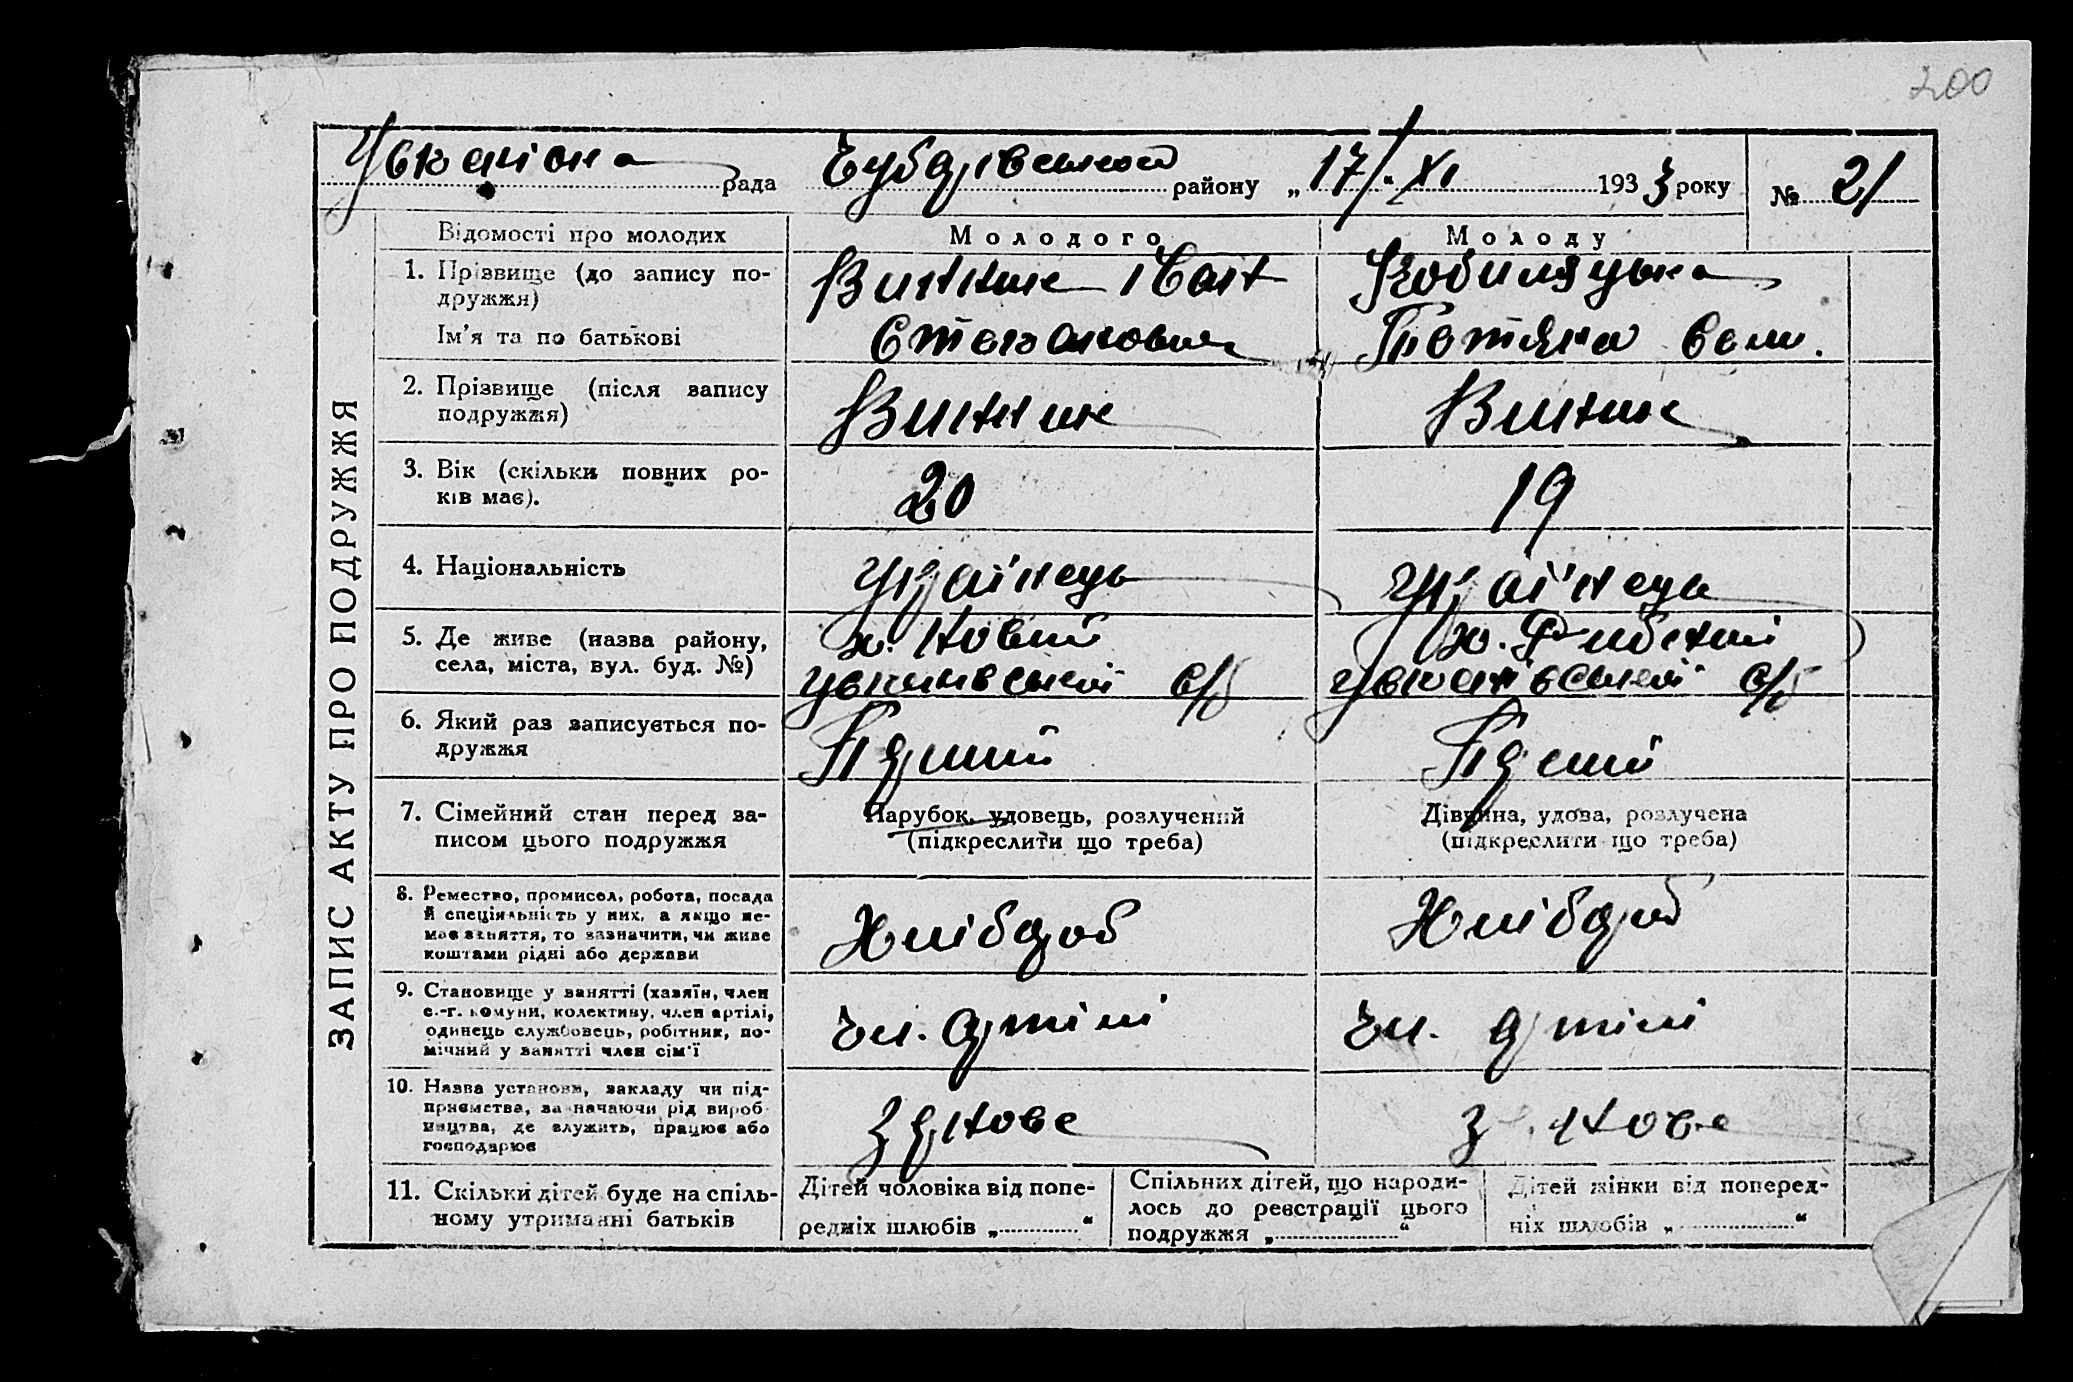 200
рада Чубарівського району „17/“ XI 1933 року № 21
ЗАПИС АКТУ ПРО ПОДРУЖЖЯ
Відомості про молодих Молодого Молоду
1. Прізвище (до запису по-
дружжя)
Ім'я та по батькові
Винник Іван
Степанович
Кобиляцька
Тетяна
2. Прізвище (після запису
подружжя)
Винник
Винник
3. Вік (скільки повних ро-
ків має).
20
19
4. Національність
Українець
Українець
5. Де живе (назва району,
села, міста, вул. буд. №)
х. Новий
с/р
х.
с/р
6. Який раз записується по-
дружжя
Перший
Перший
7. Сімейний стан перед за-
писом цього подружжя
Парубок, удовець, розлучений
(підкреслити що треба)
Дівчина, удова, розлучена
(підкреслити що треба)
8. Ремество, промисел, робота, посада
й спеціяльність у них, а якщо не-
має заняття, то зазначити, чи живе
коштами рідні або держави
Хлібороб
Хлібороб
9. Становище у занятті (хазяїн, член
с.-г. комуни, колективу, член артілі,
одинець службовець, робітник, по-
мічний у занятті член сім'ї
Чл. артілі
Чл. артілі
10. Назва установи, закладу чи під-
приємства, зазначаючи рід вироб-
ництва, де служить, працює або
господарює
Зернове
Зернове
11. Скільки дітей буде на спіль-
ному утриманні батьків
Дітей чоловіка від попе-
редніх шлюбів „ “
Спільних дітей, що народи-
лось до реєстрації цього
подружжя „ “
Дітей жінки від поперед-
ніх шлюбів „ “